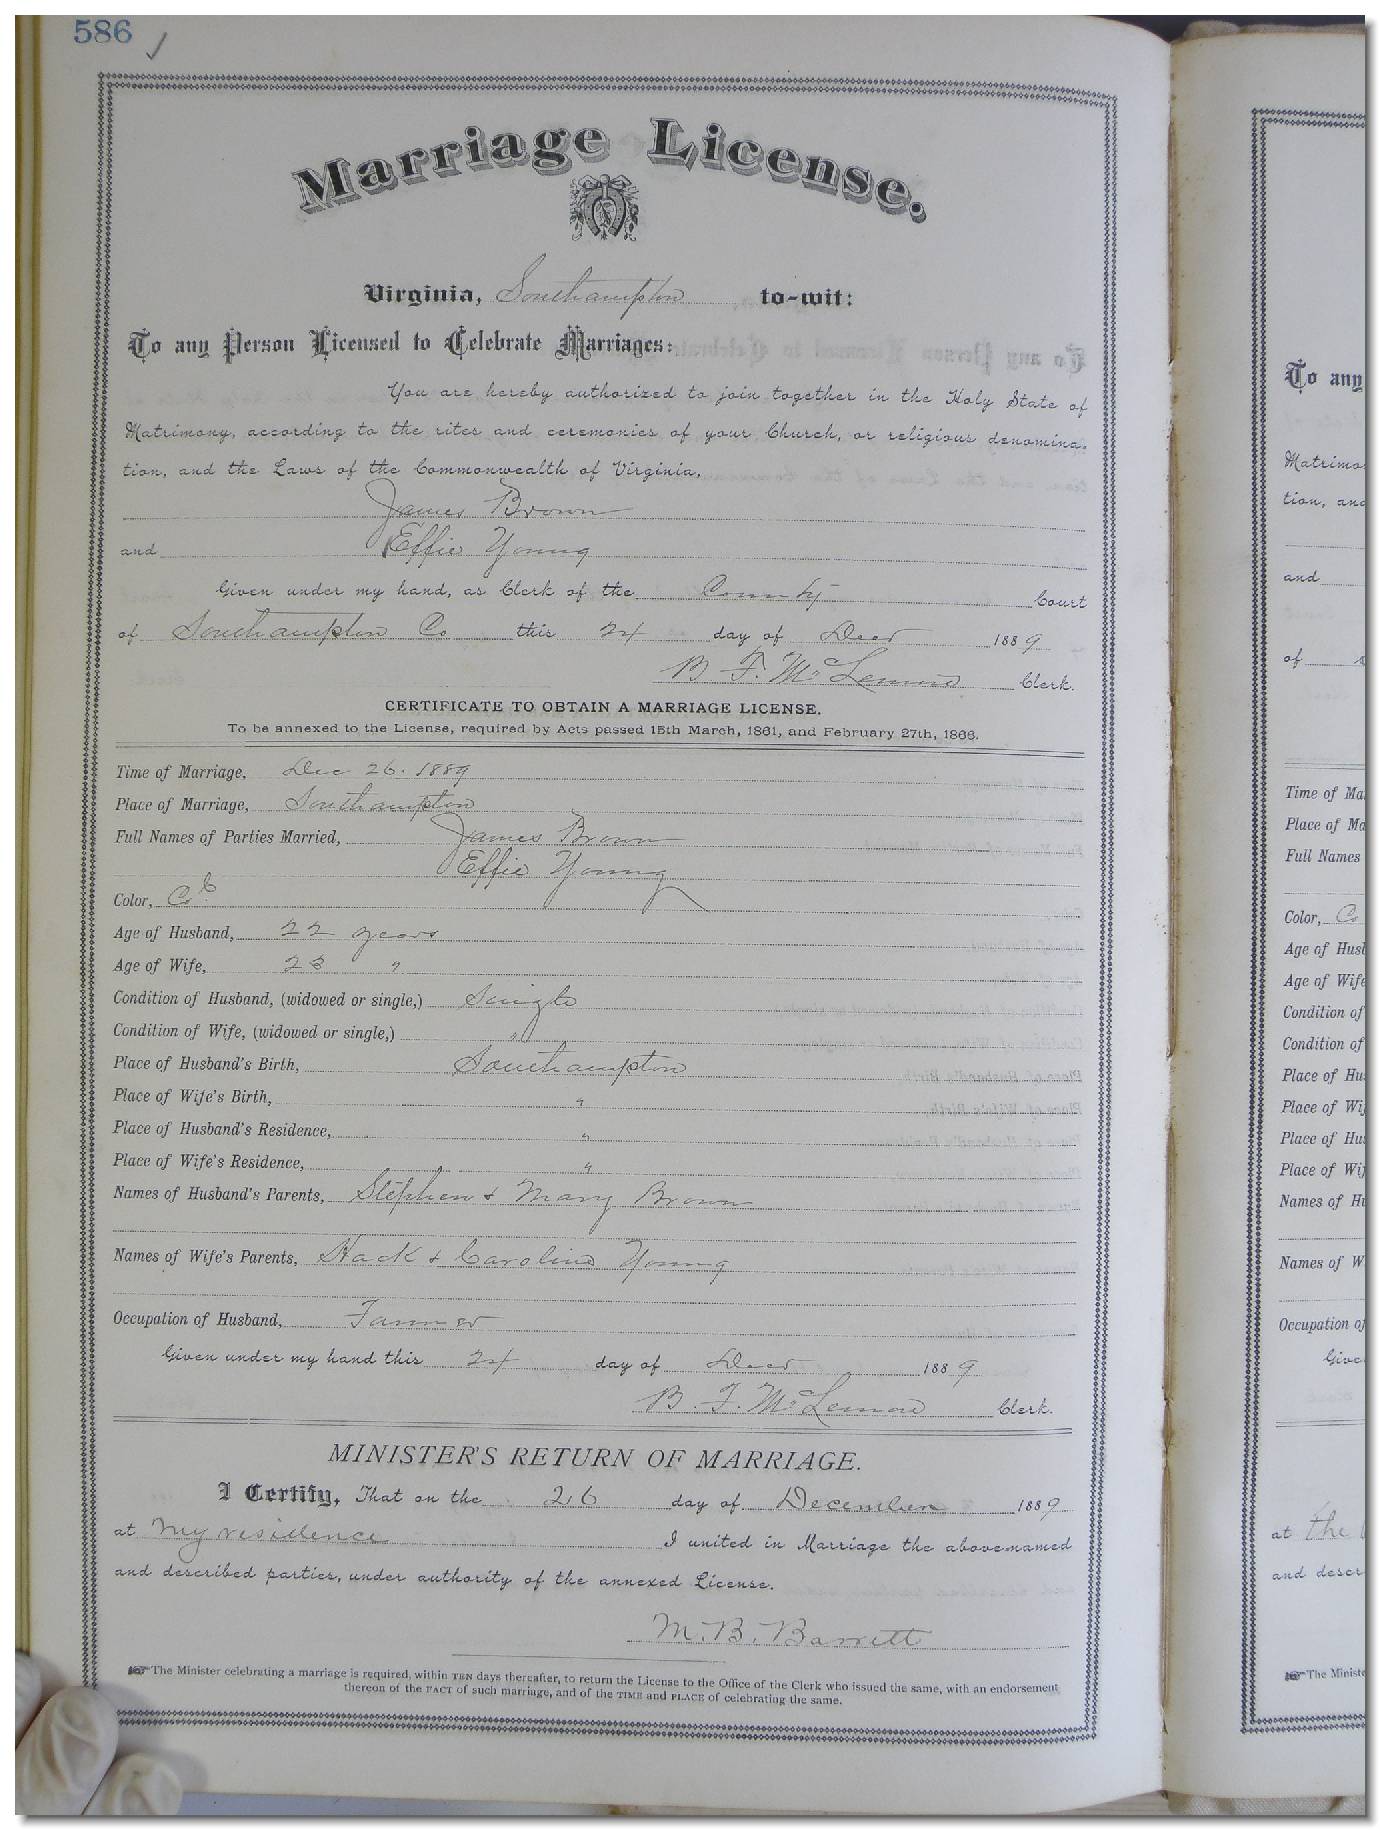 586 ✓
Marriage License.
Virginia, Southampton to-wit:
To any Person Licensed to Celebrate Marriages:
You are hereby authorized to join together in the Holy State of
Matrimony, according to the rites and ceremonies of your Church, or religious denomina-
tion, and the Laws of the Commonwealth of Virginia,
James Brown
and Effie Young
Given under my hand, as Clerk of the County Court
of Southampton Co this 24 day of Decr 1889
B. F. McLemore Clerk.
CERTIFICATE TO OBTAIN A MARRIAGE LICENSE.
To be annexed to the License, required by Acts passed 15th March, 1861, and February 27th, 1866.
Time of Marriage, Dec 26. 1889
Place of Marriage, Southampton
Full Names of Parties Married, James Brown
Effie Young
Color, Cd
Age of Husband, 22 years
Age of Wife, 23 "
Condition of Husband, (widowed or single,) Single
Condition of Wife, (widowed or single,) "
Place of Husband's Birth, Southampton
Place of Wife's Birth, "
Place of Husband's Residence, "
Place of Wife's Residence, "
Names of Husband's Parents, Stephen & Mary Brown
Names of Wife's Parents, Hack & Caroline Young
Occupation of Husband, Farmer
Given under my hand this 24 day of Decr 1889
B. F. McLemore Clerk.
MINISTER'S RETURN OF MARRIAGE.
I Certify, That on the 26 day of December 1889
at My residence I united in Marriage the above-named
and described parties, under authority of the annexed License.
M. B. Barrett
The Minister celebrating a marriage is required, within TEN days thereafter, to return the License to the Office of the Clerk who issued the same, with an endorsement
thereon of the FACT of such marriage, and of the TIME and PLACE of celebrating the same.
To any
Matrimo
tion, and
and
of
Time of Ma
Place of Ma
Full Names
Color, Co
Age of Husb
Age of Wife
Condition of
Condition of
Place of Hu
Place of Wi
Place of Hu
Place of Wi
Names of Hu
Names of W
Occupation of
Give
at the
and descr
The Ministe